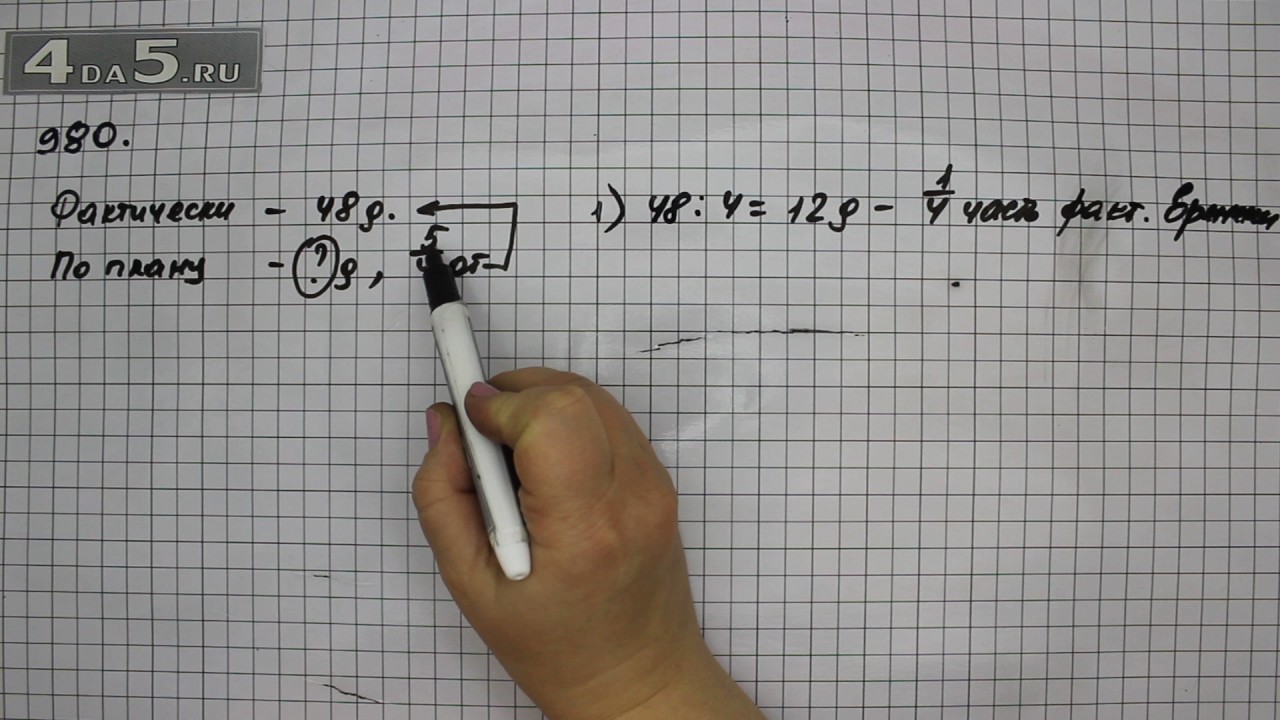 4DA5.RU
980.
Фактически - 48 д.
1) 48 : 4 = 12 д - 1/4 часть факт. времени
По плану - ? д, 5/4 от